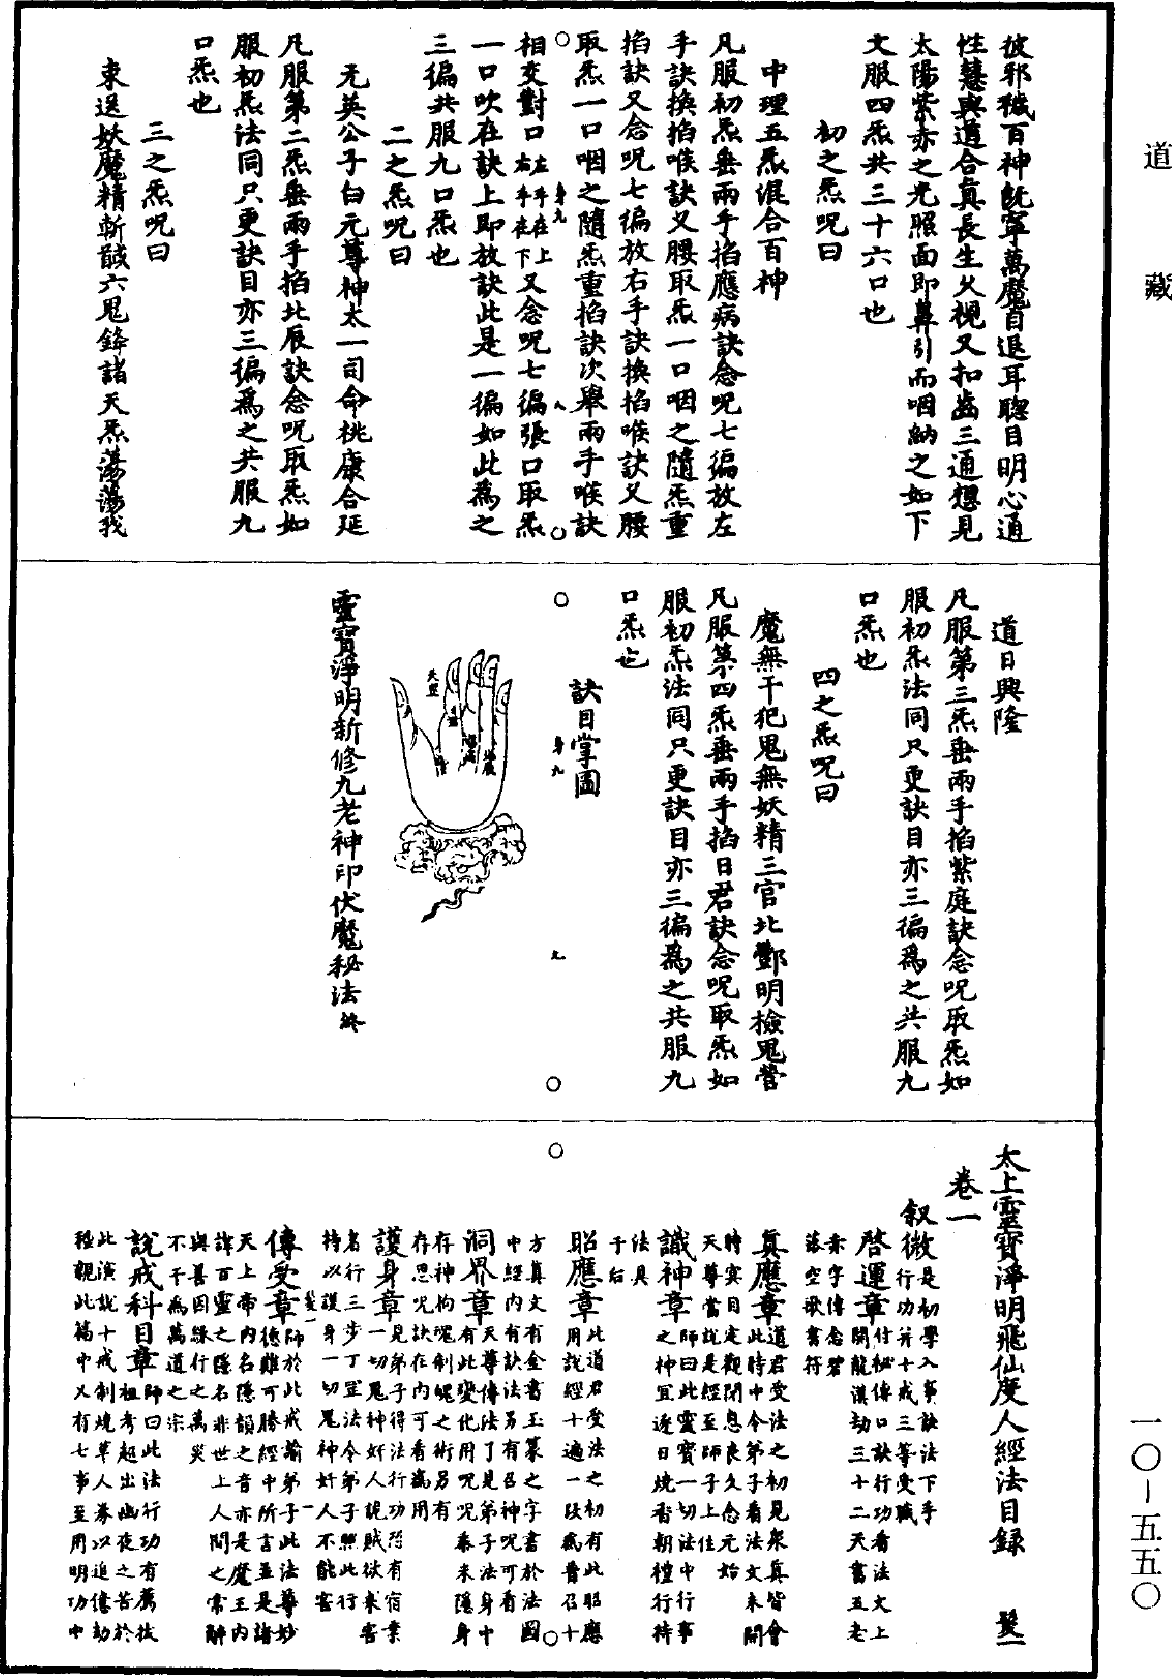 道藏
彼邪穢百神旣寧萬魔自退耳聦目明心通
性慧與道合真長生久視又扣齒三通想見
太陽紫赤之光照面即鼻引而咽納之如下
文服四炁共三十六口也
初之炁呪曰
中理五炁混合百神
凡服初炁垂兩手掐應病訣念呪七徧放左
手訣換掐喉訣又腰取炁一口咽之隨炁重
掐訣又念呪七徧放右手訣換掐喉訣又腰
取炁一口咽之隨炁重掐訣次舉兩手喉訣
相交對口左手在上右手在下又念呪七徧張口取炁
一口吹在訣上即放訣此是一徧如此為之
三徧共服九口炁也
二之炁呪曰
无英公子白元尊神太一司命桃康合延
凡服第二炁垂兩手掐北辰訣念呪取炁如
服初炁法同只更訣目亦三徧為之共服九
口炁也
三之炁呪曰
束送妖魔精斬馘六鬼鋒諸天炁蕩蕩我
道日興隆
凡服第三炁垂兩手掐紫庭訣念呪取炁如
服初炁法同只更訣目亦三徧爲之共服九
口炁也
四之炁呪曰
魔無干犯鬼無妖精三官北酆明檢鬼營
凡服第四炁垂兩手掐日君訣念呪取炁如
服初炁法同只更訣目亦三徧為之共服九
口炁也
訣目掌圖
靈寶淨明新修九老神印伏魔秘法終
太上靈寶淨明飛仙度人經法目錄 髮一
卷一
叙微是初學入事訣法下手行功并十戒三等受職
啓運章開龍漢劫三十二天書五老付秘傳口訣行功看法文上
篆字傳念碧落空歌書符
真應章道君受法之初見衆真皆會此時中令弟子看法文未開
時寞目定觀閉息良久念元始天尊當說是經至師子上住
識神章師曰此靈寶一切法中行事之神宜逐日燒香朝禮行持
法具于后
昭應章此道君受法之初有此昭應用說經十遍一段感普召十
方真文有金書玉篆之字書於法國中經內有訣法另有召神呪可看
洞界章天尊傳法了見弟子法身中有此變化用呪呪奏来隱身
存神拘魂制魄之術另有存思呪訣在內可看為用
護身章見弟子得法行功恐有宿業一切鬼神奸人說賊欲来害
者行三步丁罡法令弟子熙此行持以護身一切鬼神奸人不能害
傳受章師於此戒諭弟子此法尊妙德難可勝經中所言並是諸
天上帝內名隱韻之音亦是魔王內諱百靈之隱名非世上人間之常辭
與善因緣行之萬災不干為萬道之宗
說戒科目章師曰此法行功有薦拔祖考超出幽夜之苦於
此演說十戒制燒草人募以追億劫種親此篇中又有七事至用明功中
一〇—五五〇